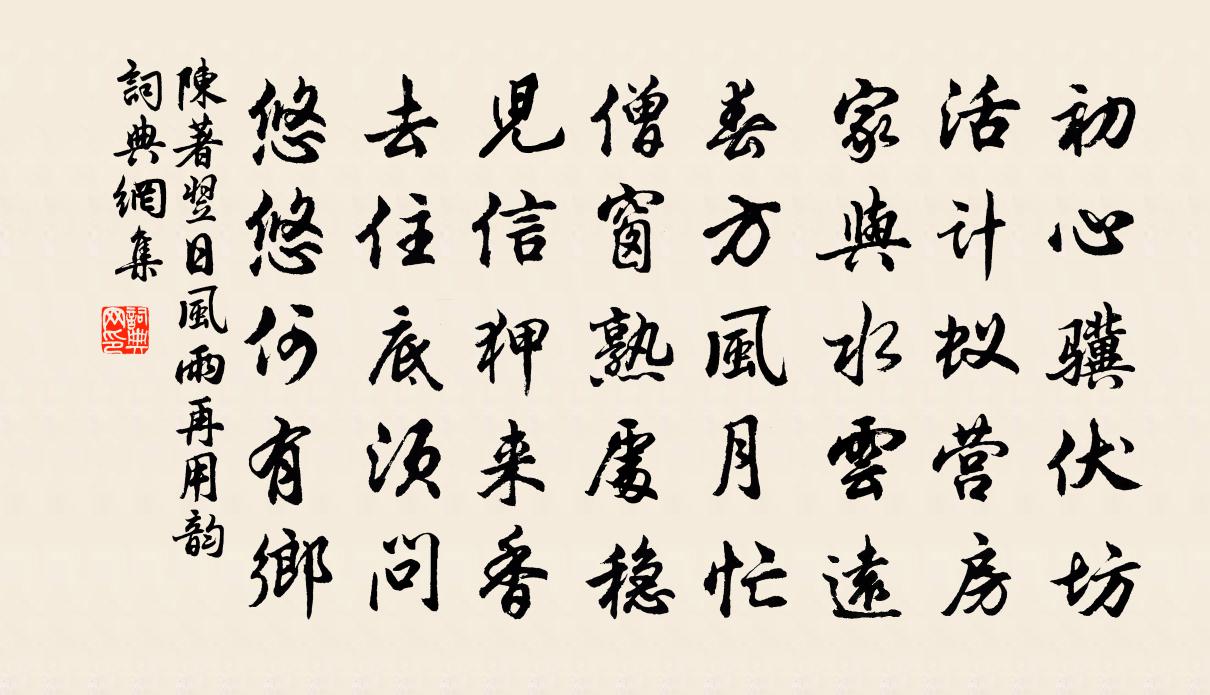 初心驥伏坊
活计蚁营房
家與水雲遠
春方風月忙
僧窗熟處穩
児信狎来香
去住底须问
悠悠何有鄉
陳著翌日風雨再用韵
詞典網集
詞典网印